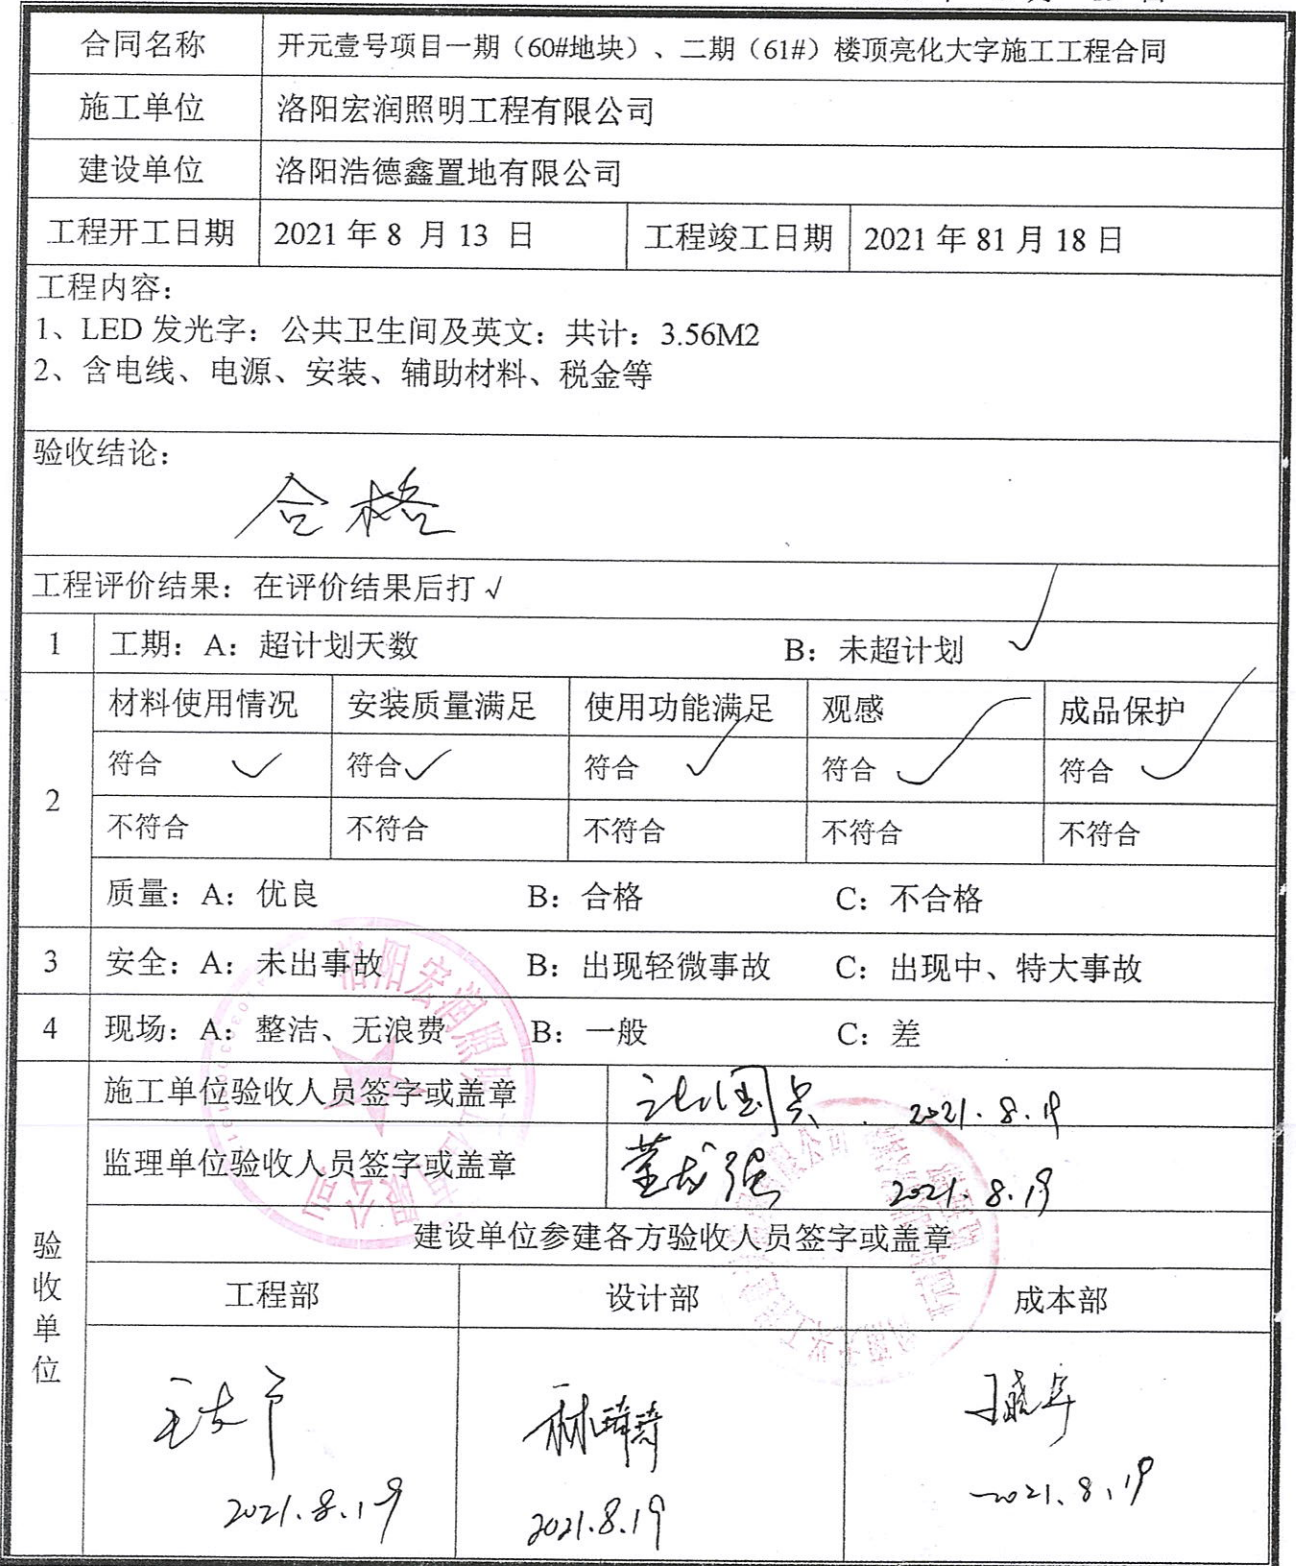 合同名称 开元壹号项目一期（60#地块）、二期（61#）楼顶亮化大字施工工程合同
施工单位 洛阳宏润照明工程有限公司
建设单位 洛阳浩德鑫置地有限公司
工程开工日期 2021 年 8 月 13 日 工程竣工日期 2021 年 81 月 18 日
工程内容：
1、LED 发光字：公共卫生间及英文：共计：3.56M2
2、含电线、电源、安装、辅助材料、税金等
验收结论：
合格
工程评价结果：在评价结果后打√
1 工期：A：超计划天数 B：未超计划 √
2
材料使用情况 安装质量满足 使用功能满足 观感 成品保护
符合 √ 符合 √ 符合 √ 符合 √ 符合 √
不符合 不符合 不符合 不符合 不符合
质量：A：优良 B：合格 C：不合格
3 安全：A：未出事故 B：出现轻微事故 C：出现中、特大事故
4 现场：A：整洁、无浪费 B：一般 C：差
验收单位
施工单位验收人员签字或盖章 2021.8.19
监理单位验收人员签字或盖章 2021.8.19
建设单位参建各方验收人员签字或盖章
工程部 设计部 成本部
2021.8.19 2021.8.19 2021.8.19